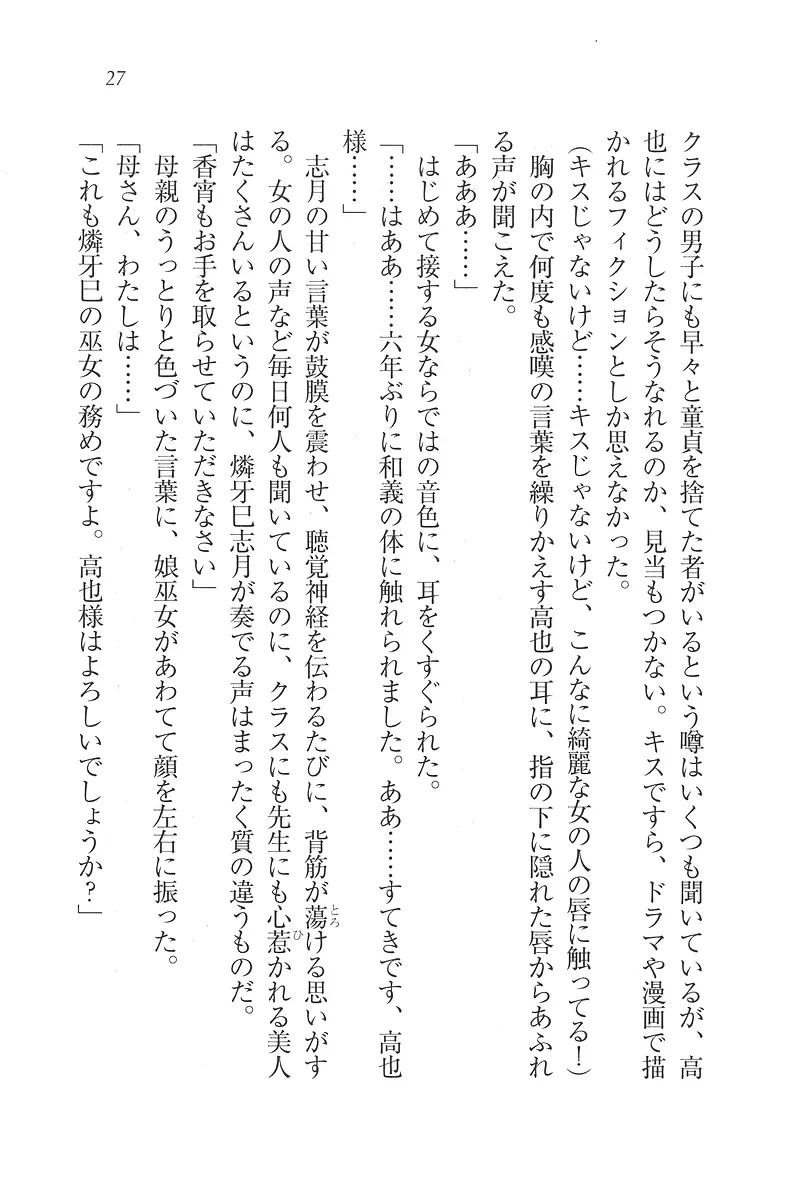 27
クラスの男子にも早々と童貞を捨てた者がいるという噂はいくつも聞いているが、高
也にはどうしたらそうなれるのか、見当もつかない。キスですら、ドラマや漫画で描
かれるフィクションとしか思えなかった。
（キスじゃないけど……キスじゃないけど、こんなに綺麗な女の人の唇に触ってる！）
　胸の内で何度も感嘆の言葉を繰りかえす高也の耳に、指の下に隠れた唇からあふれ
る声が聞こえた。
「あああ……」
　はじめて接する女ならではの音色に、耳をくすぐられた。
「……はああ……六年ぶりに和義の体に触れられました。ああ……すてきです、高也
様……」
　志月の甘い言葉が鼓膜を震わせ、聴覚神経を伝わるたびに、背筋が蕩とろける思いがす
る。女の人の声など毎日何人も聞いているのに、クラスにも先生にも心惹ひかれる美人
はたくさんいるというのに、燐牙巳志月が奏でる声はまったく質の違うものだ。
「香宵もお手を取らせていただきなさい」
　母親のうっとりと色づいた言葉に、娘巫女があわてて顔を左右に振った。
「母さん、わたしは……」
「これも燐牙巳の巫女の務めですよ。高也様はよろしいでしょうか？」